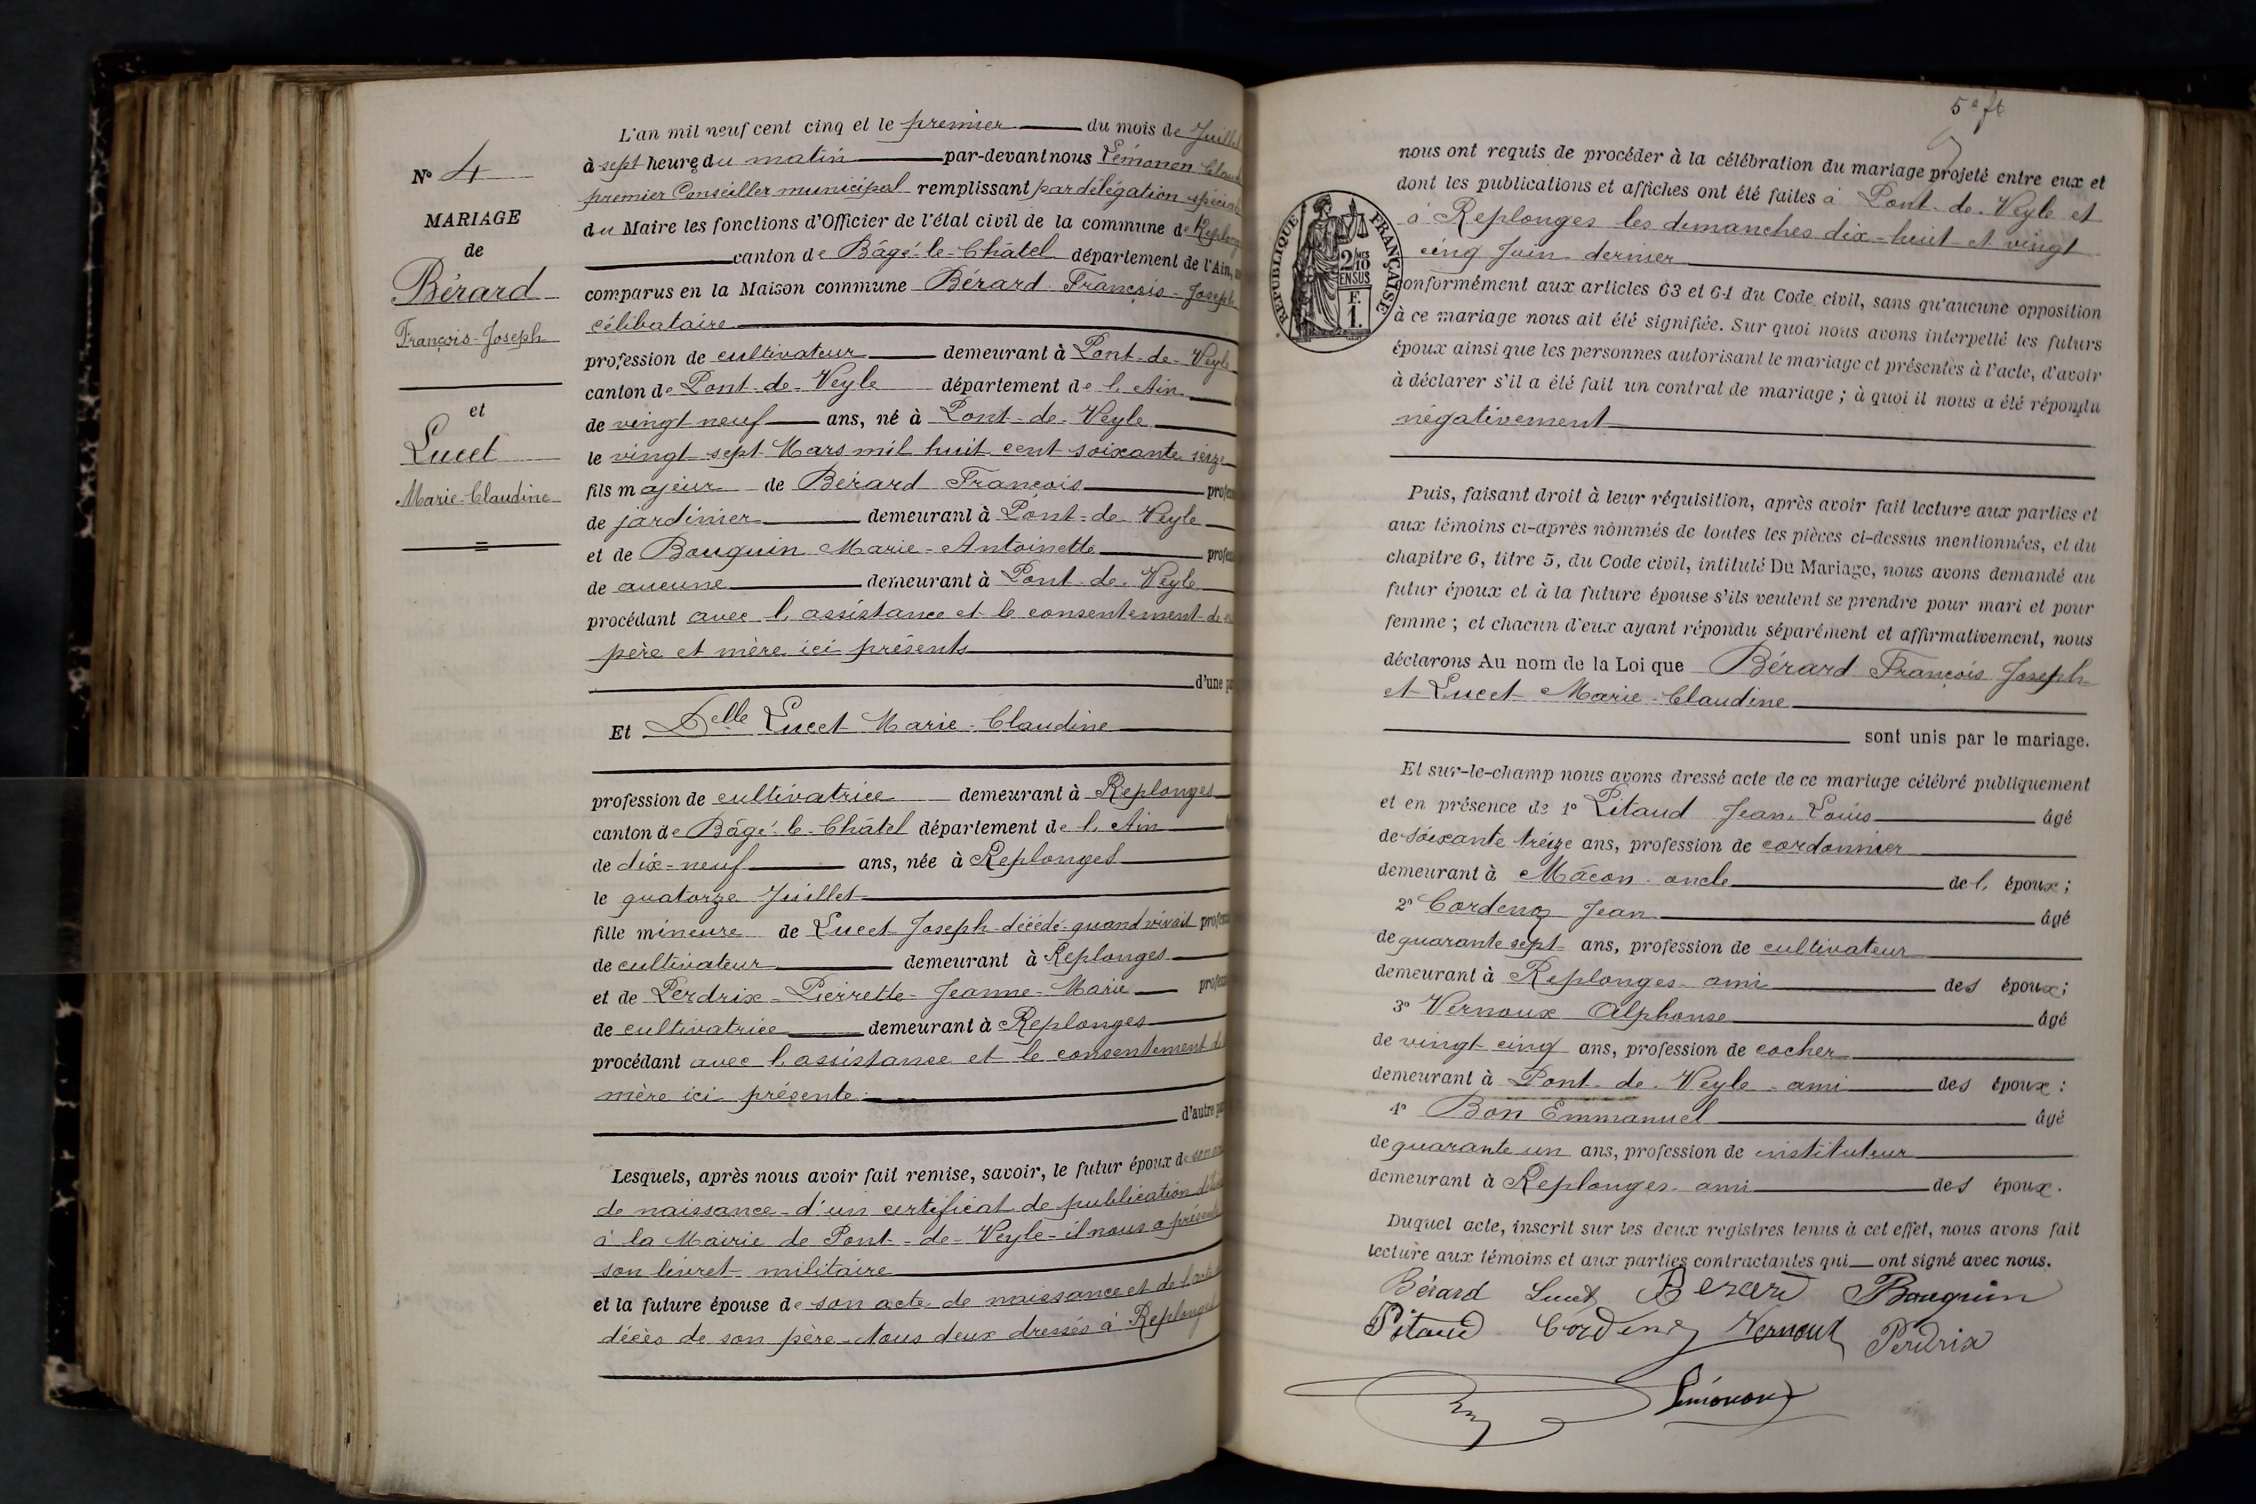 N° 4
MARIAGE
de
Bérard
François-Joseph
et
Lucet
Marie-Claudine
L'an mil neuf cent cinq et le premier du mois de Juillet
à sept heures du matin par-devant nous Lémonon
premier Conseiller municipal remplissant par délégation
du Maire les fonctions d'Officier de l'état civil de la commune de
canton de Bâgé-le-Châtel département de l'Ain,
comparus en la Maison commune Bérard François-Joseph
célibataire
profession de cultivateur demeurant à Pont-de-Veyle
canton de Pont-de-Veyle département de l'Ain
de vingt neuf ans, né à Pont-de-Veyle
le vingt-sept Mars mil huit cent soixante seize
fils majeur de Bérard François
de jardinier demeurant à Pont-de-Veyle
et de Bouquin Marie-Antoinette
de aucune demeurant à Pont-de-Veyle
procédant avec l'assistance et le consentement de
père et mère ici présents
d'une
Et Delle Lucet Marie-Claudine
profession de cultivatrice demeurant à Replonges
canton de Bâgé-le-Châtel département de l'Ain
de dix-neuf ans, née à Replonges
le quatorze Juillet
fille mineure de Lucet Joseph décédé quand vivait
de cultivateur demeurant à Replonges
et de Perdrix-Pierrette-Jeanne-Marie
de cultivatrice demeurant à Replonges
procédant avec l'assistance et le consentement de
mère ici présente
d'autre
Lesquels, après nous avoir fait remise, savoir, le futur époux de
de naissance - d'un certificat de publication
à la Mairie de Pont-de-Veyle - il nous a présenté
son livret militaire
et la future épouse de son acte de naissance et de
décès de son père - tous deux dressés à Replonges
5e ft
nous ont requis de procéder à la célébration du mariage projeté entre eux et
dont les publications et affiches ont été faites à Pont-de-Veyle et
à Replonges les dimanches dix-huit et vingt
cinq Juin dernier
conformément aux articles 63 et 64 du Code civil, sans qu'aucune opposition
à ce mariage nous ait été signifiée. Sur quoi nous avons interpellé les futurs
époux ainsi que les personnes autorisant le mariage et présentes à l'acte, d'avoir
à déclarer s'il a été fait un contrat de mariage ; à quoi il nous a été répondu
négativement
REPUBLIQUE FRANÇAISE
2/10
EN SUS
F.
1.
Puis, faisant droit à leur réquisition, après avoir fait lecture aux parties et
aux témoins ci-après nommés de toutes les pièces ci-dessus mentionnées, et du
chapitre 6, titre 5, du Code civil, intitulé Du Mariage, nous avons demandé au
futur époux et à la future épouse s'ils veulent se prendre pour mari et pour
femme ; et chacun d'eux ayant répondu séparément et affirmativement, nous
déclarons Au nom de la Loi que Bérard François Joseph
et Lucet Marie-Claudine
sont unis par le mariage.
Et sur-le-champ nous avons dressé acte de ce mariage célébré publiquement
et en présence de 1° Pitaud Jean-Louis âgé
de soixante treize ans, profession de cordonnier
demeurant à Mâcon oncle de l'époux ;
2° Cordenoz Jean âgé
de quarante sept ans, profession de cultivateur
demeurant à Replonges ami des époux ;
3° Vernoux Alphonse âgé
de vingt-cinq ans, profession de cocher
demeurant à Pont-de-Veyle ami des époux :
4° Bon Emmanuel âgé
de quarante un ans, profession de instituteur
demeurant à Replonges ami des époux.
Duquel acte, inscrit sur les deux registres tenus à cet effet, nous avons fait
lecture aux témoins et aux parties contractantes qui ont signé avec nous.
Bérard Lucet Berard Bouquin
Pitaud Cordenoz Vernoux Perdrix
Lémonon